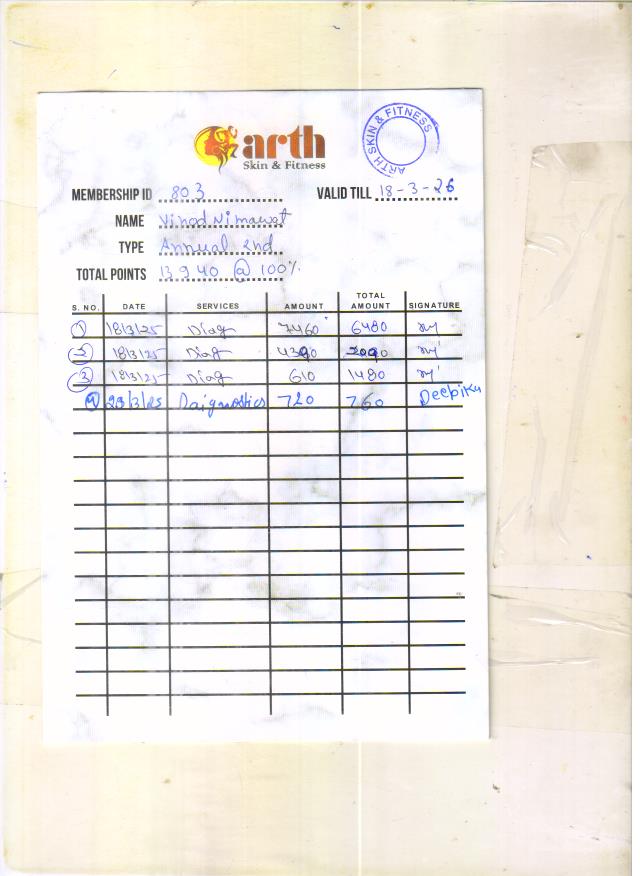 arth
Skin & Fitness
ARTH SKIN & FITNESS
MEMBERSHIP ID 803 VALID TILL 18-3-26
NAME Vinod Nimawat
TYPE Annual 2nd
TOTAL POINTS 13940 @ 100%
S. NO. DATE SERVICES AMOUNT TOTAL AMOUNT SIGNATURE
1 18/3/25 Diag 7460 6480
2 18/3/25 Diag
3 18/3/25 Diag 610 1480
4 23/3/25 Daignostics 720 760 Deepika